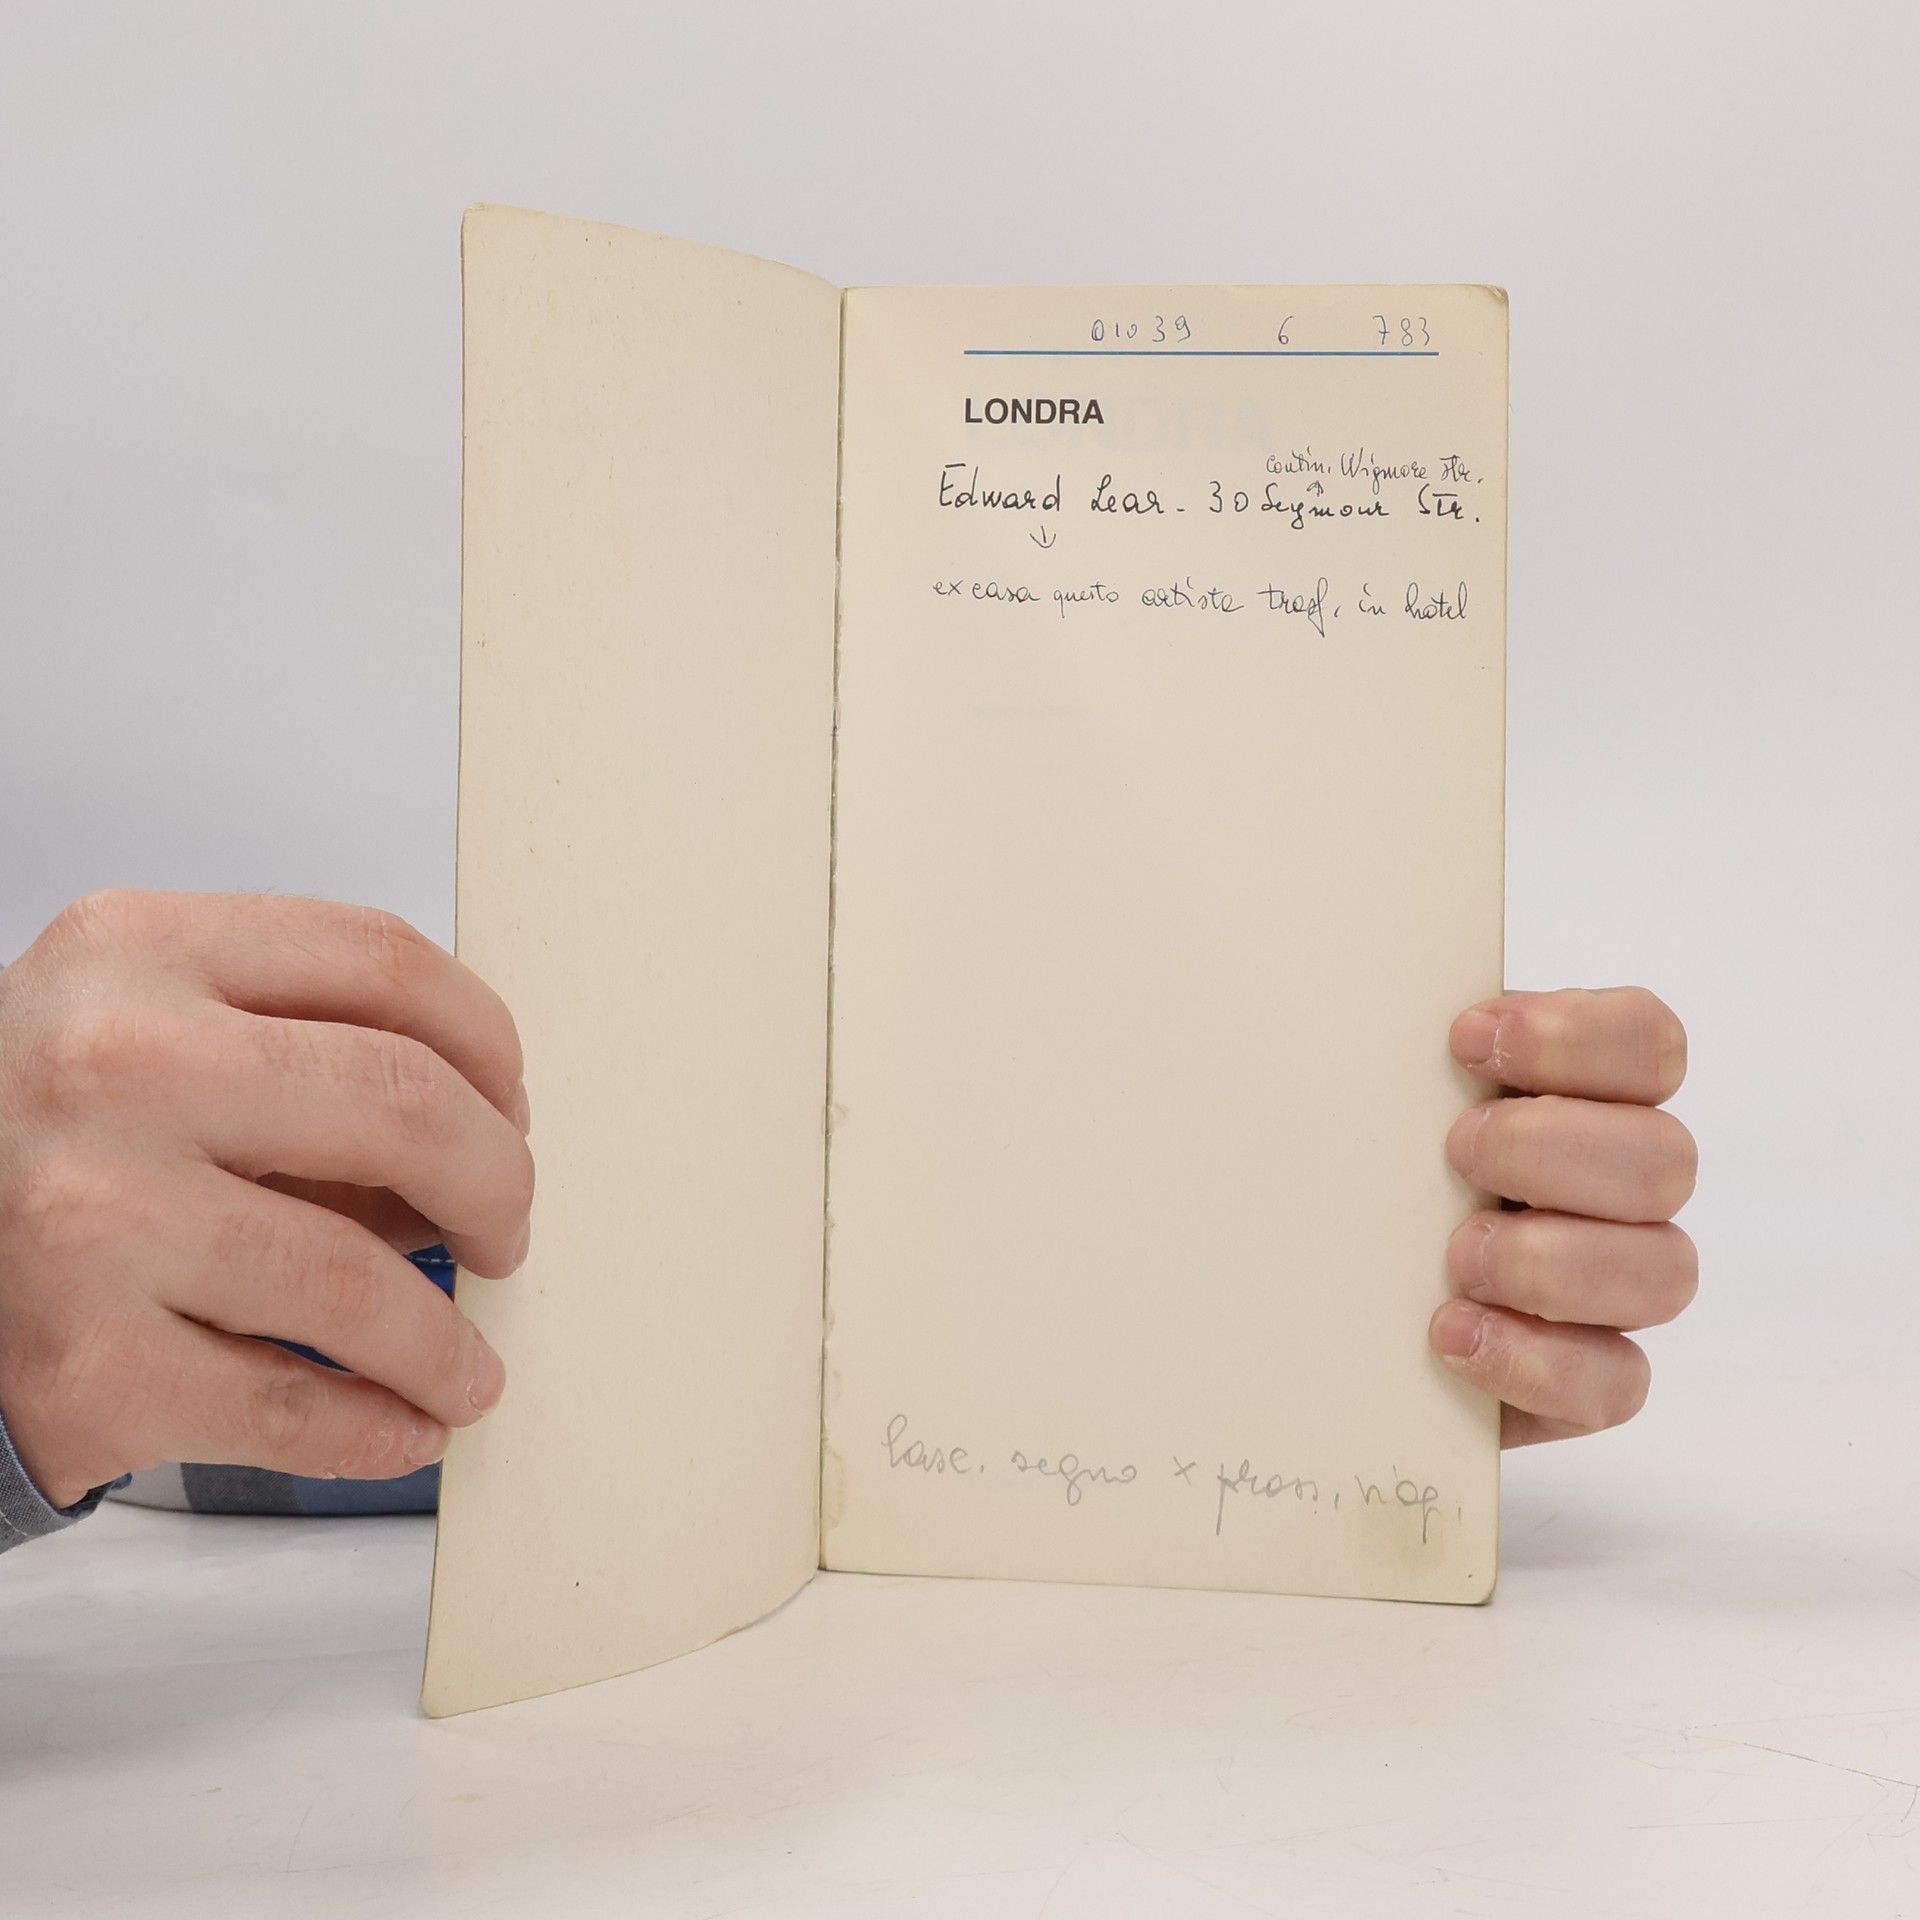 01039 6 783
LONDRA
contin. Wigmore Str.
Edward Lear - 30 Seymour Str.
ex casa questo artista trasf. in hotel
lasc. segno x pross. viag.